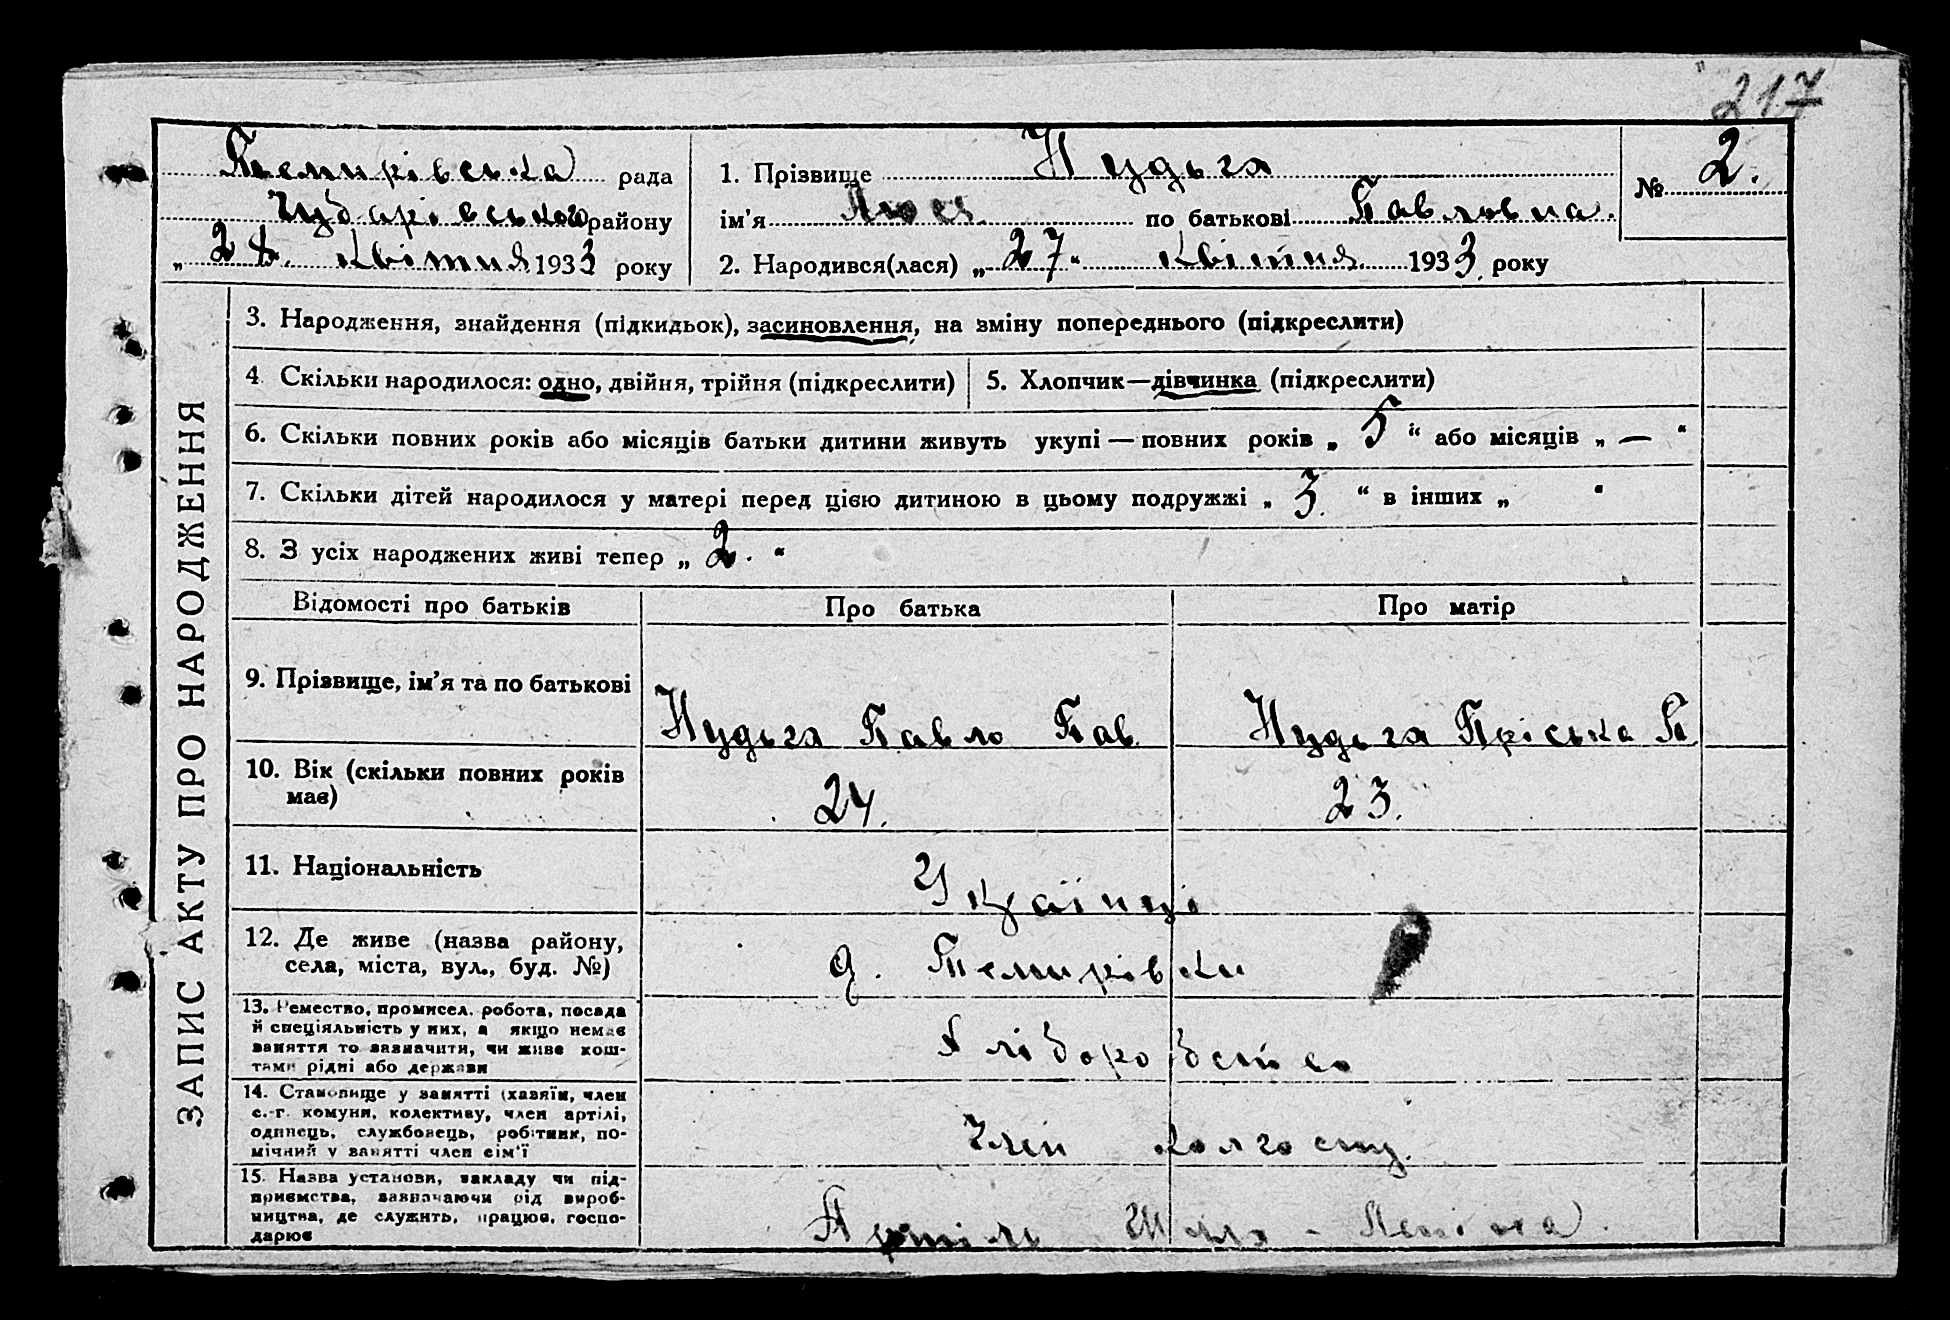 217
Темирівська рада
Чубарівського району
„ 28. квітня 1933 року
1. Прізвище Нудьга
ім'я Люся по батькові Павловна.
2. Народився(лася) „ 27 “ квітня 1933 року
№ 2.
ЗАПИС АКТУ ПРО НАРОДЖЕННЯ
3. Народження, знайдення (підкидьок), засиновлення, на зміну попереднього (підкреслити)
4. Скільки народилося: одно, двійня, трійня (підкреслити)
5. Хлопчик—дівчинка (підкреслити)
6. Скільки повних років або місяців батьки дитини живуть укупі — повних років „ 5 “ або місяців „ — “
7. Скільки дітей народилося у матері перед цією дитиною в цьому подружжі „ 3. “ в інших „ “
8. З усіх народжених живі тепер „ 2. “
Відомості про батьків Про батька Про матір
9. Прізвище, ім'я та по батькові
Нудьга Павло Пав. Нудьга Пріська П
10. Вік (скільки повних років
має)
24. 23.
11. Національність
Українці
12. Де живе (назва району,
села, міста, вул., буд. №)
с. Темирівки
13. Ремество, промисел, робота, посада
й спеціяльність у них, а якщо немає
заняття то зазначити, чи живе кош-
тами рідні або держави
Хліборобство
14. Становище у занятті (хазяїн, член
с.-г. комуни, колективу, член артілі,
одинець, службовець, робітник, по-
мічний у занятті член сім'ї
Член колгоспу.
15. Назва установи, закладу чи під-
приємства, зазначаючи рід вироб-
ництва, де служить, працює, госпо-
дарює
Артіль Шлях - Леніна.